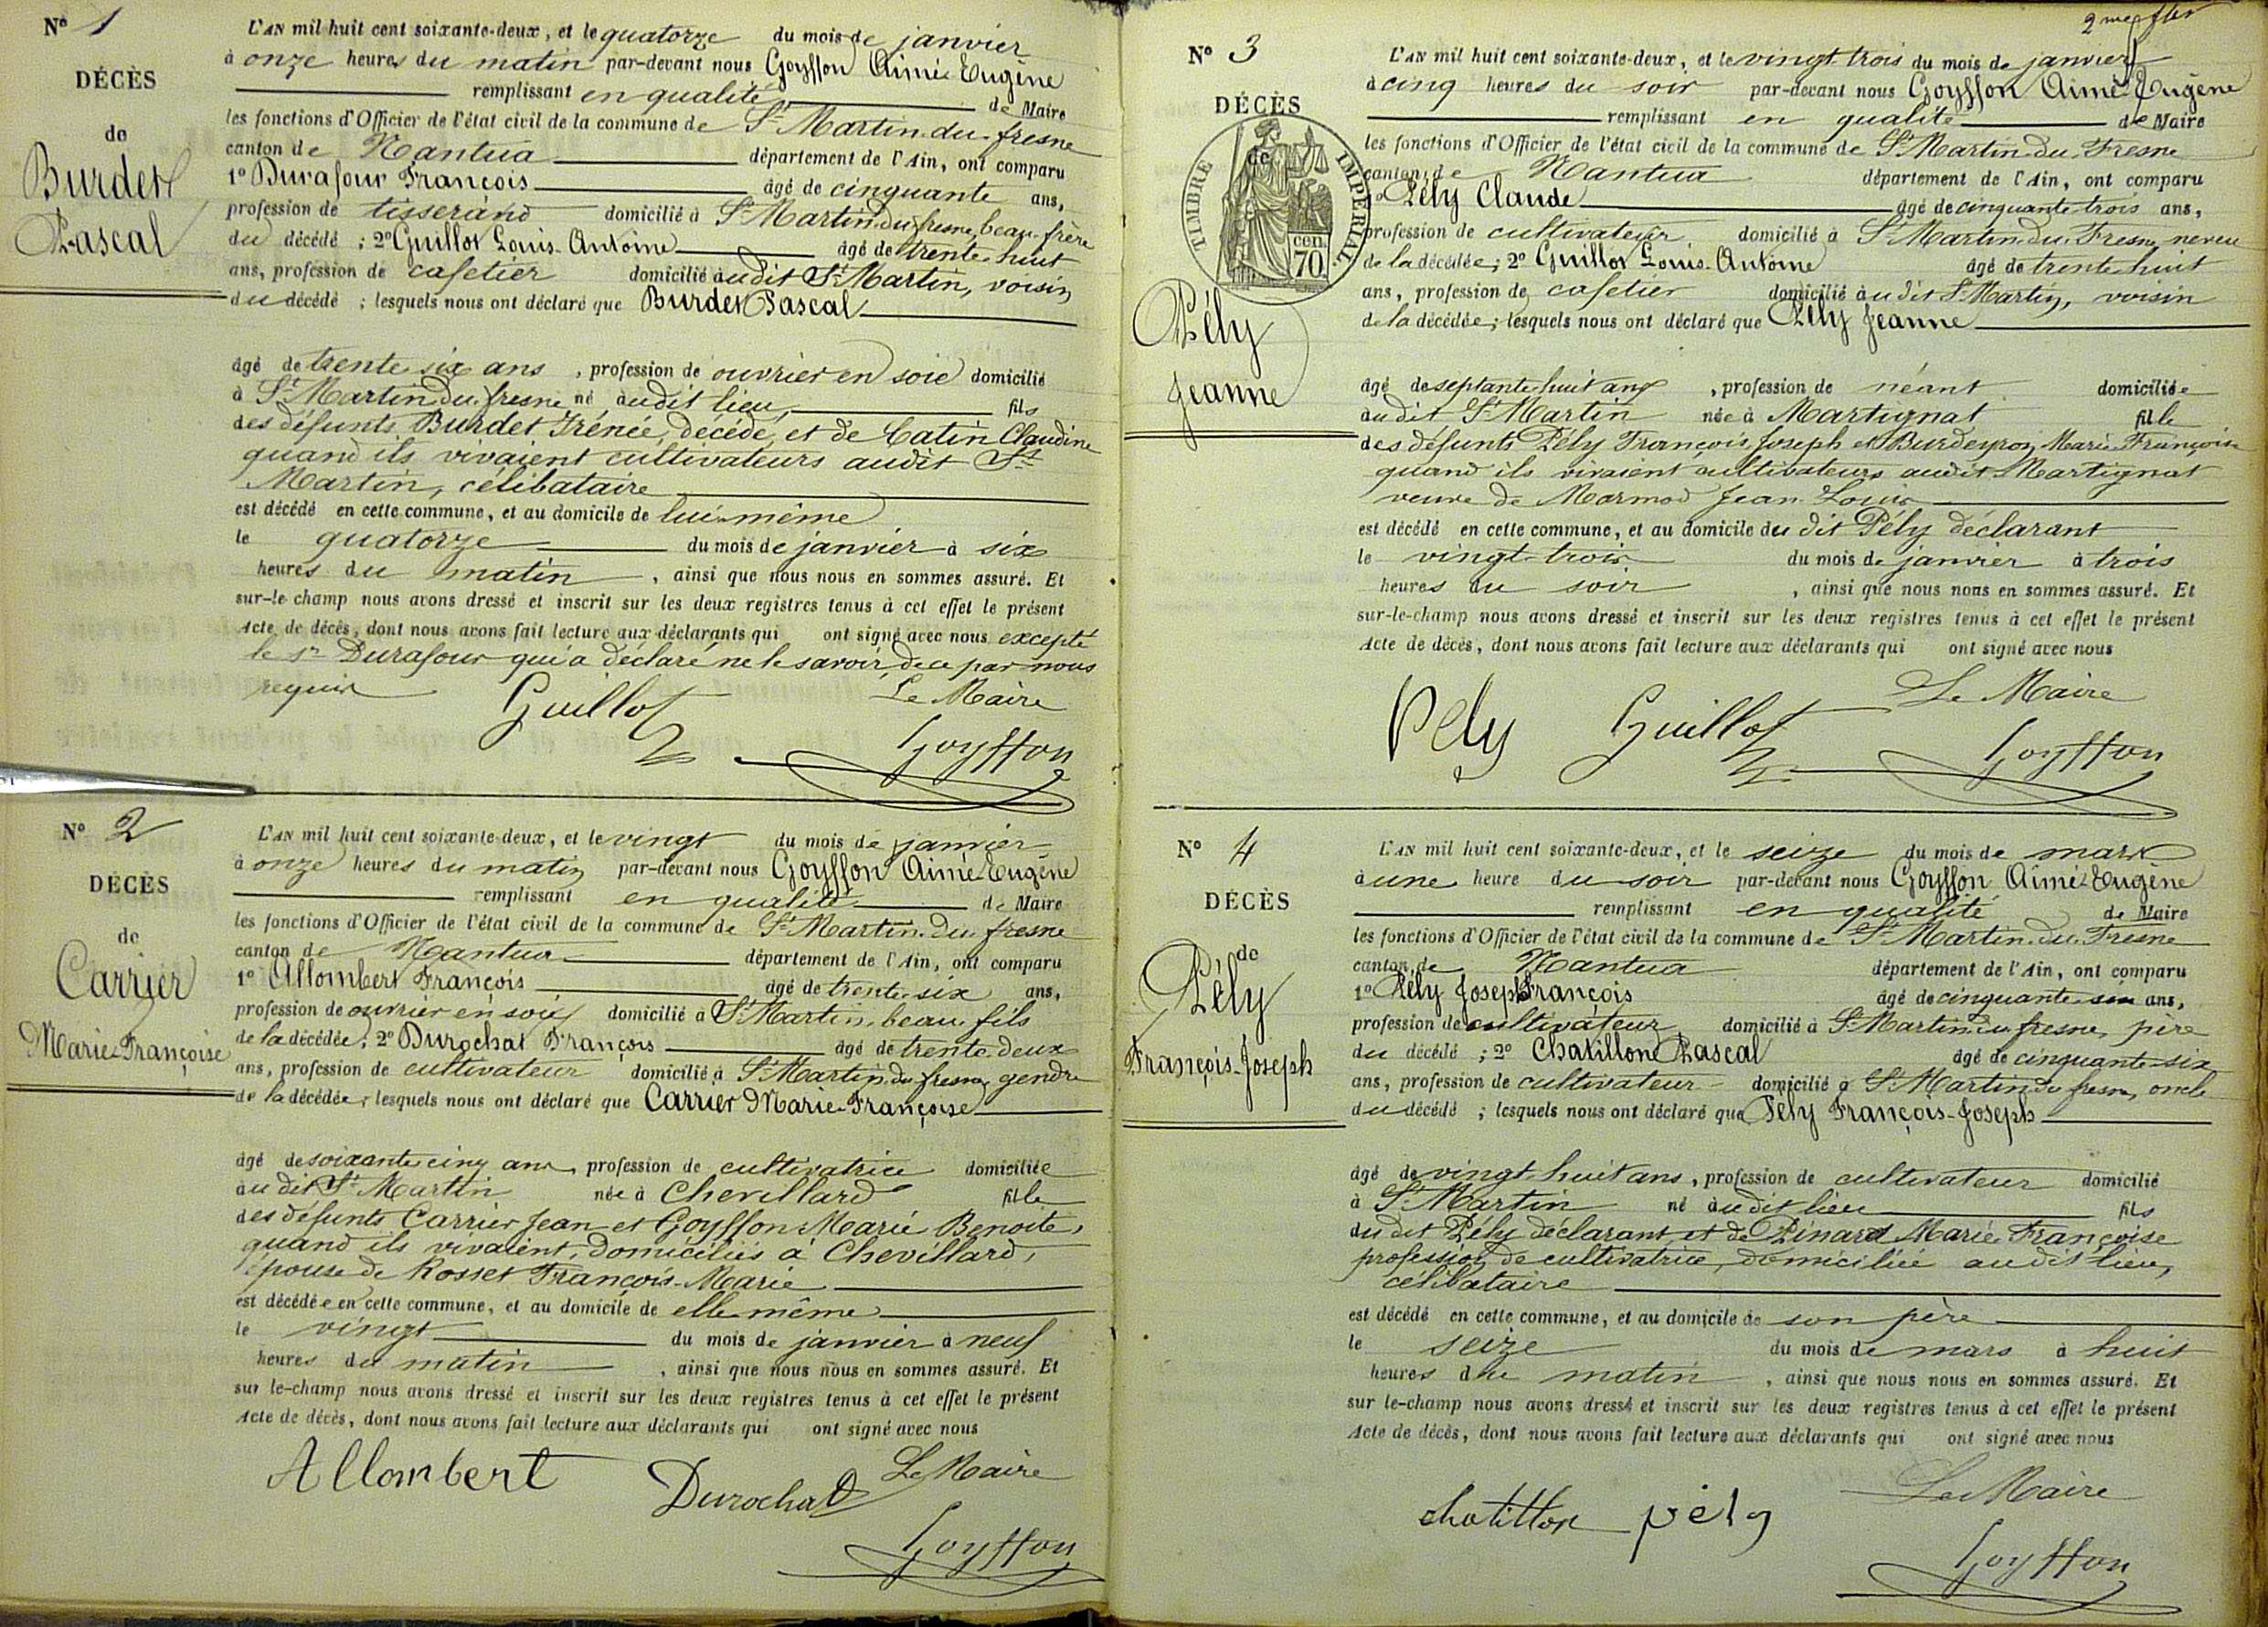 N° 1
DÉCÈS
de
Burdet
Pascal
L'AN mil huit cent soixante-deux, et le quatorze du mois de janvier
à onze heures du matin par-devant nous Goyffon Aimé Eugène
remplissant en qualité de Maire
les fonctions d'Officier de l'état civil de la commune de St Martin-du-fresne
canton de Nantua département de l'Ain, ont comparu
1° Durafour François âgé de cinquante ans,
profession de tisserand domicilié à St Martin du fresne, beau-frère
du décédé ; 2° Guillot Louis-Antoine âgé de trente-huit
ans, profession de cafetier domicilié audit St Martin, voisin
du décédé ; lesquels nous ont déclaré que Burdet Pascal
âgé de trente six ans , profession de ouvrier en soie domicilié
à St Martin du fresne né audit lieu, fils
des défunts Burdet Irénée, décédé, et de Catin Claudine
quand ils vivaient cultivateurs audit St
Martin, célibataire
est décédé en cette commune, et au domicile de lui-même
le quatorze du mois de janvier à six
heures du matin , ainsi que nous nous en sommes assuré. Et
sur-le-champ nous avons dressé et inscrit sur les deux registres tenus à cet effet le présent
Acte de décès, dont nous avons fait lecture aux déclarants qui ont signé avec nous excepté
le sr Durafour qui a déclaré ne le savoir, de ce par nous
requis
Le Maire
Guillot
Goyffon
N° 2
DÉCÈS
de
Carrier
Marie-Françoise
L'AN mil huit cent soixante-deux, et le vingt du mois de janvier
à onze heures du matin par-devant nous Goyffon Aimé Eugène
remplissant en qualité de Maire
les fonctions d'Officier de l'état civil de la commune de St Martin-du-fresne
canton de Nantua département de l'Ain, ont comparu
1° Allombert François âgé de trente-six ans,
profession de ouvrier en soie domicilié à St Martin, beau-fils
de la décédée ; 2° Durochat François âgé de trente-deux
ans, profession de cultivateur domicilié à St Martin du fresne, gendre
de la décédée, lesquels nous ont déclaré que Carrier Marie-Françoise
âgé de soixante cinq ans, profession de cultivatrice domiciliée
audit St Martin née à Chevillard fille
des défunts Carrier Jean et Goyffon Marie Benoite,
quand ils vivaient, domiciliés à Chevillard,
épouse de Rosset François-Marie
est décédée en cette commune, et au domicile de elle-même
le vingt du mois de janvier à neuf
heures du matin , ainsi que nous nous en sommes assuré. Et
sur le-champ nous avons dressé et inscrit sur les deux registres tenus à cet effet le présent
Acte de décès, dont nous avons fait lecture aux déclarants qui ont signé avec nous
Le Maire
Allombert Durochat
Goyffon
2me
N° 3
DÉCÈS
de
TIMBRE IMPÉRIAL
70 cen.
Pély
Jeanne
L'AN mil huit cent soixante-deux, et le vingt-trois du mois de janvier
à cinq heures du soir par-devant nous Goyffon Aimé-Eugène
remplissant en qualité de Maire
les fonctions d'Officier de l'état civil de la commune de St Martin-du-Fresne
canton de Nantua département de l'Ain, ont comparu
1° Pély Claude âgé de cinquante-trois ans,
profession de cultivateur domicilié à St Martin-du-Fresne, neveu
de la décédée ; 2° Guillot Louis-Antoine âgé de trente-huit
ans, profession de cafetier domicilié audit St Martin, voisin
de la décédée ; lesquels nous ont déclaré que Pély Jeanne
âgé de septante-huit ans , profession de néant domiciliée
audit St Martin née à Martignat fille
des défunts Pély François Joseph et Burdeyron Marie Françoise
quand ils vivaient cultivateurs audit Martignat
veuve de Marmod Jean-Louis
est décédé en cette commune, et au domicile du dit Pély déclarant
le vingt-trois du mois de janvier à trois
heures du soir , ainsi que nous nous en sommes assuré. Et
sur-le-champ nous avons dressé et inscrit sur les deux registres tenus à cet effet le présent
Acte de décès, dont nous avons fait lecture aux déclarants qui ont signé avec nous
Le Maire
Pely Guillot
Goyffon
N° 4
DÉCÈS
de
Pély
François-Joseph
L'AN mil huit cent soixante-deux, et le seize du mois de mars
à une heure du soir par-devant nous Goyffon Aimé-Eugène
remplissant en qualité de Maire
les fonctions d'Officier de l'état civil de la commune de St Martin-du-Fresne
canton de Nantua département de l'Ain, ont comparu
1° Pély Joseph François âgé de cinquante-six ans,
profession de cultivateur domicilié à St Martin du fresne, père
du décédé ; 2° Chatillon Pascal âgé de cinquante-six
ans, profession de cultivateur domicilié à St Martin du fresne, oncle
du décédé ; lesquels nous ont déclaré que Pély François-Joseph
âgé de vingt-huit ans , profession de cultivateur domicilié
à St Martin né audit lieu fils
du dit Pély déclarant, et de Pinard Marie Françoise
profession de cultivatrice, domiciliée audit lieu,
célibataire
est décédé en cette commune, et au domicile de son père
le seize du mois de mars à huit
heures du matin , ainsi que nous nous en sommes assuré. Et
sur le-champ nous avons dressé et inscrit sur les deux registres tenus à cet effet le présent
Acte de décès, dont nous avons fait lecture aux déclarants qui ont signé avec nous
Le Maire
chatillon pély
Goyffon